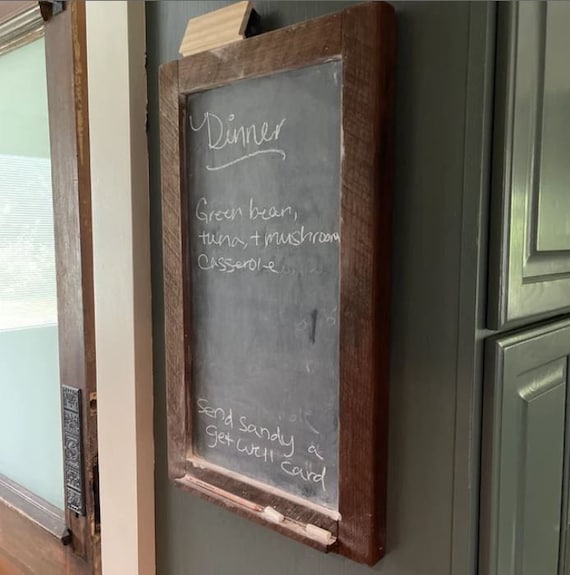 Dinner
Green bean,
tuna, + mushroom
casserole
Send Sandy a
get well card